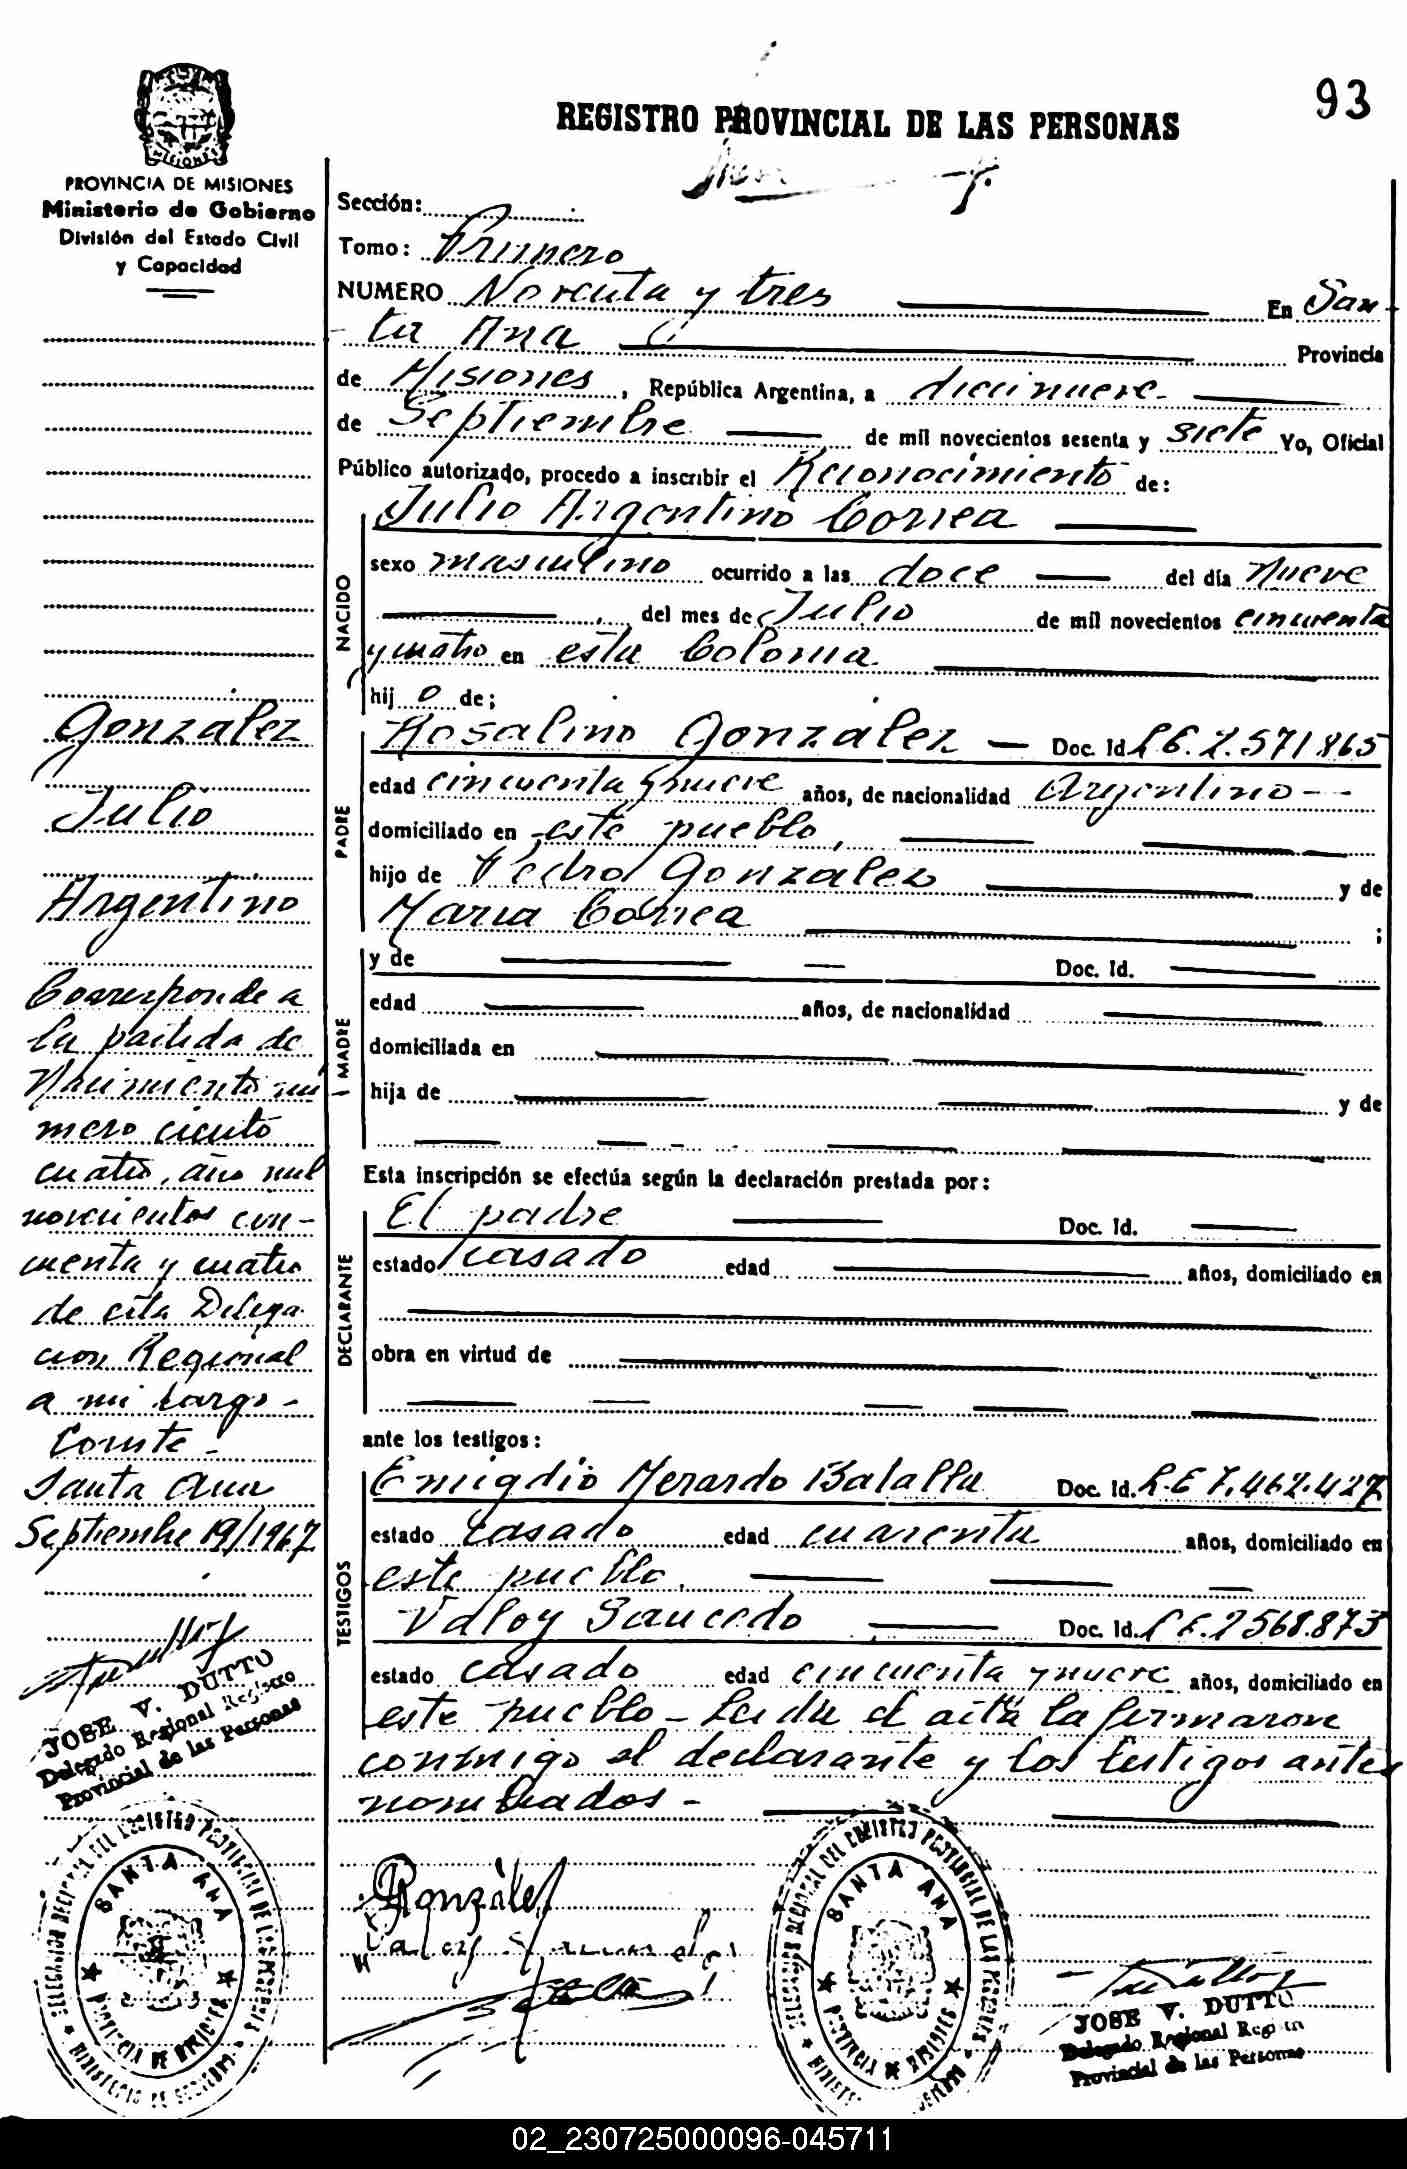 93
REGISTRO PROVINCIAL DE LAS PERSONAS
MISIONES
PROVINCIA DE MISIONES
Ministerio de Gobierno
División del Estado Civil
y Capacidad
Sección:
Tomo: Primero
NUMERO Noventa y tres En San-
ta Ana Provincia
de Misiones, República Argentina, a diecinueve
de Septiembre de mil novecientos sesenta y siete Yo, Oficial
Público autorizado, procedo a inscribir el Reconocimiento de:
NACIDO
Julio Argentino Correa
sexo masculino ocurrido a las doce del día Nueve
del mes de Julio de mil novecientos cincuenta
y cuatro en esta Colonia
hij o de;
PADRE
Rosalino González Doc. Id. L E. 2.571.865
edad cincuenta y nueve años, de nacionalidad Argentino --
domiciliado en este pueblo,
hijo de Pedro González y de
María Correa ;
MADRE
y de Doc. Id.
edad años, de nacionalidad
domiciliada en
hija de y de
Esta inscripción se efectúa según la declaración prestada por:
DECLARANTE
El padre Doc. Id.
estado casado edad años, domiciliado en
obra en virtud de
ante los testigos:
TESTIGOS
Emigdio Merardo Batalla Doc. Id. L.E 7.462.427
estado casado edad cuarenta años, domiciliado en
este pueblo.
Valoy Saucedo Doc. Id. L E. 2568.873
estado casado edad cincuenta y nueve años, domiciliado en
este pueblo - Leída el acta la firmaron
conmigo el declarante y los testigos antes
nombrados -
González
Julio
Argentino
Corresponde a
la partida de
Nacimiento nú
mero ciento
cuatro, año mil
novecientos cin-
cuenta y cuatro
de esta Delega
cion Regional
a mi cargo -
Conste -
Santa Ana
Septiembre 19/1967
JOSE V. DUTTO
Delegado Regional Registro
Provincial de las Personas
DELEGACION REGIONAL DEL REGISTRO PROVINCIAL DE LAS PERSONAS
SANTA ANA
PROVINCIA DE MISIONES
MINISTERIO DE GOBIERNO
González
DELEGACION REGIONAL DEL REGISTRO PROVINCIAL DE LAS PERSONAS
SANTA ANA
PROVINCIA DE MISIONES
JOSE V. DUTTO
Delegado Regional Registro
Provincial de las Personas
02_230725000096-045711